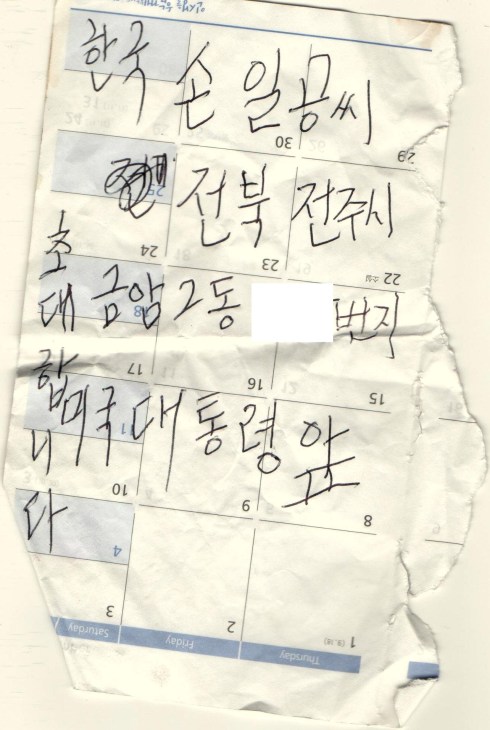 한국 손 일공씨
전북 전주시
금암 2동 번지
미국 대통령 앞
초
대
합
니
다
30
29
24
23
22
17
16
15
11
10
9
8
4
3
2
1
Saturday
Friday
Thursday